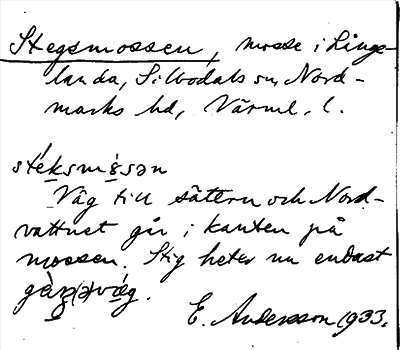 Stegsmossen, mosse i Linge-
landa, Silbodals sn, Nord-
marks hd, Värml. l.
stéksmòsən
Väg till sätern och Nord-
vattnet går i kanten på
mossen. Stig heter nu endast
gàŋ(ə)väg.
E. Andersson 1933.